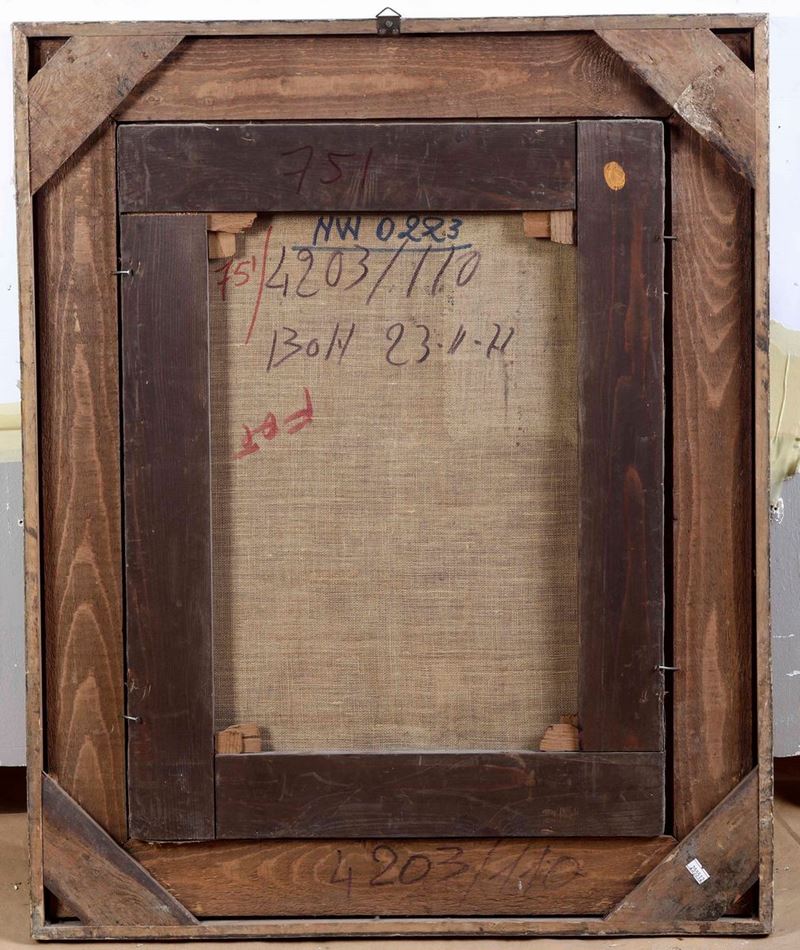 751
NW 0223
75'/ 4203/110
BoH 23-11-71
4203/110